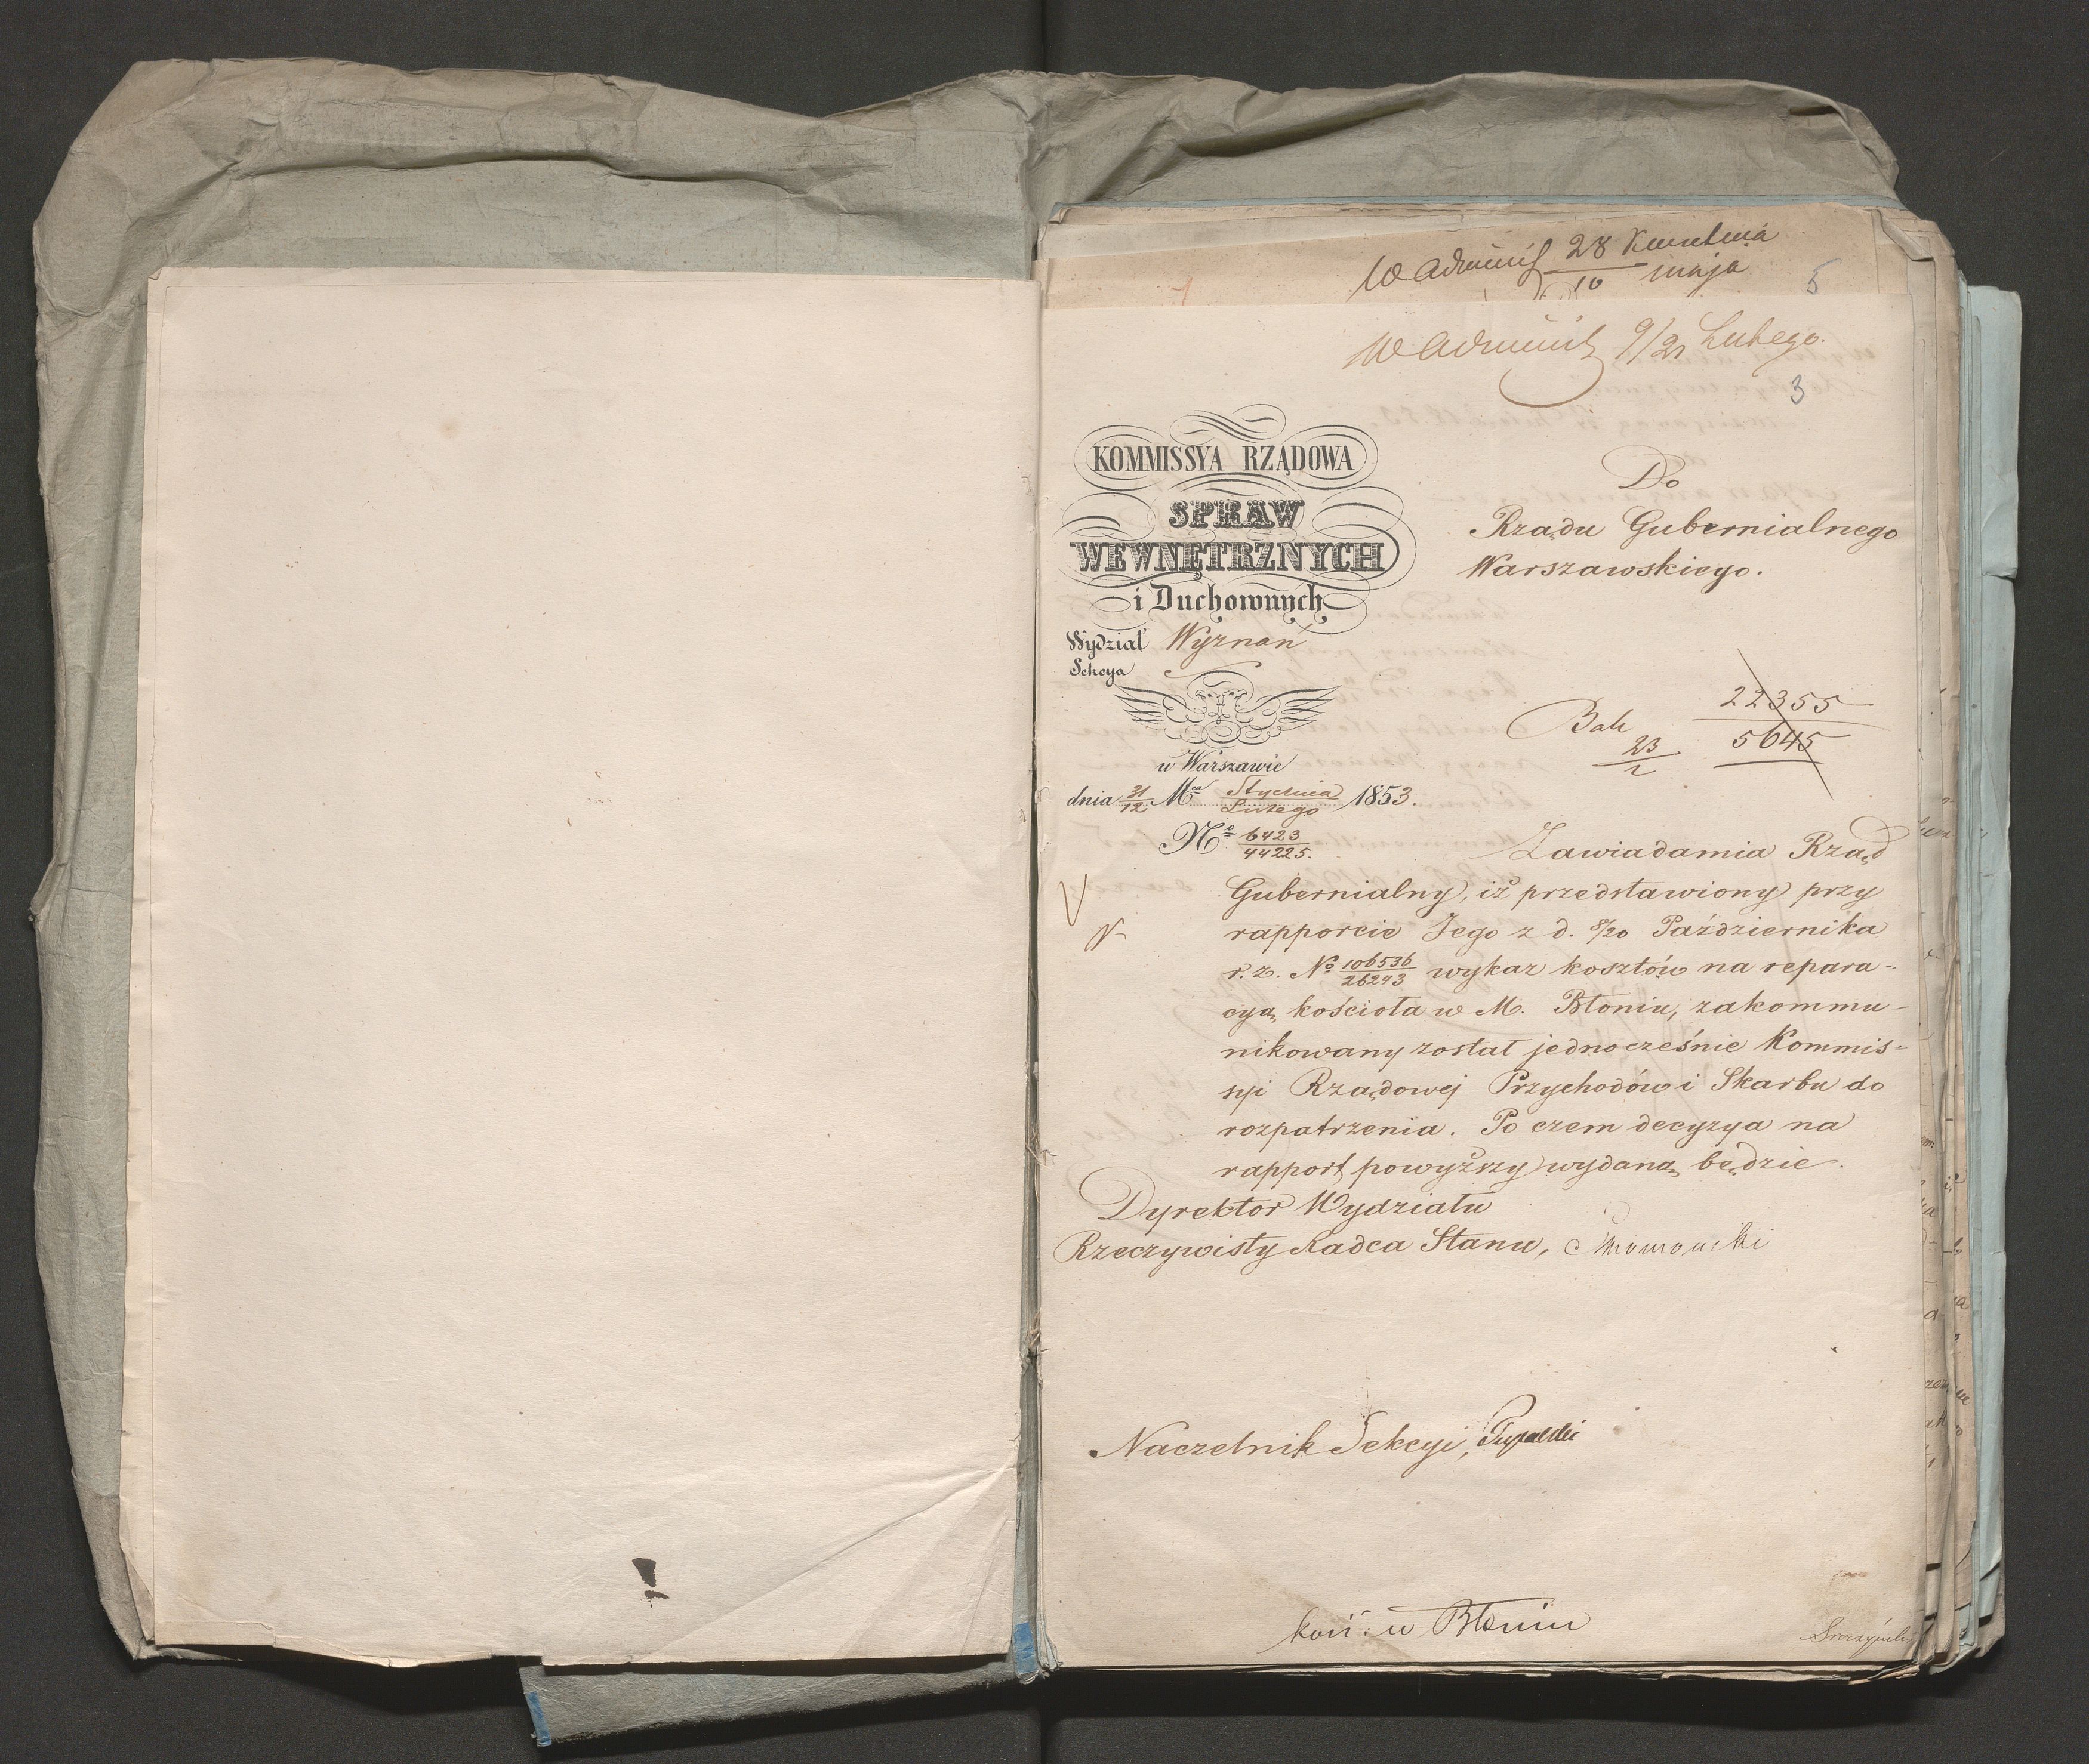 28 Kwietnia
10 maja
5
9/21 Lutego.
3
KOMMISSYA RZĄDOWA
SPRAW
WEWNĘTRZNYCH
i Duchownych
Wydział Wyznań
Sekcya
w Warszawie
dnia 31/12 Mca Stycznia/Lutego 1853.
No 6423/44225.
Do
Rządu Gubernialnego
Warszawskiego.
22355
5645
23/2
Zawiadamia Rząd
Gubernialny, iż przedstawiony przy
rapporcie Jego z d. 8/20 Października
r. z. No 106536/26243 wykaz kosztów na repara-
cyą kościoła w M. Błoniu, zakommu-
nikowany został jednocześnie Kommis-
syi Rządowej Przychodów i Skarbu do
rozpatrzenia. Po czem decyzya na
rapport powyższy wydaną będzie.
Dyrektor Wydziału
Rzeczywisty Radca Stanu,
Naczelnik Sekcyi,
kośc: w Błoniu